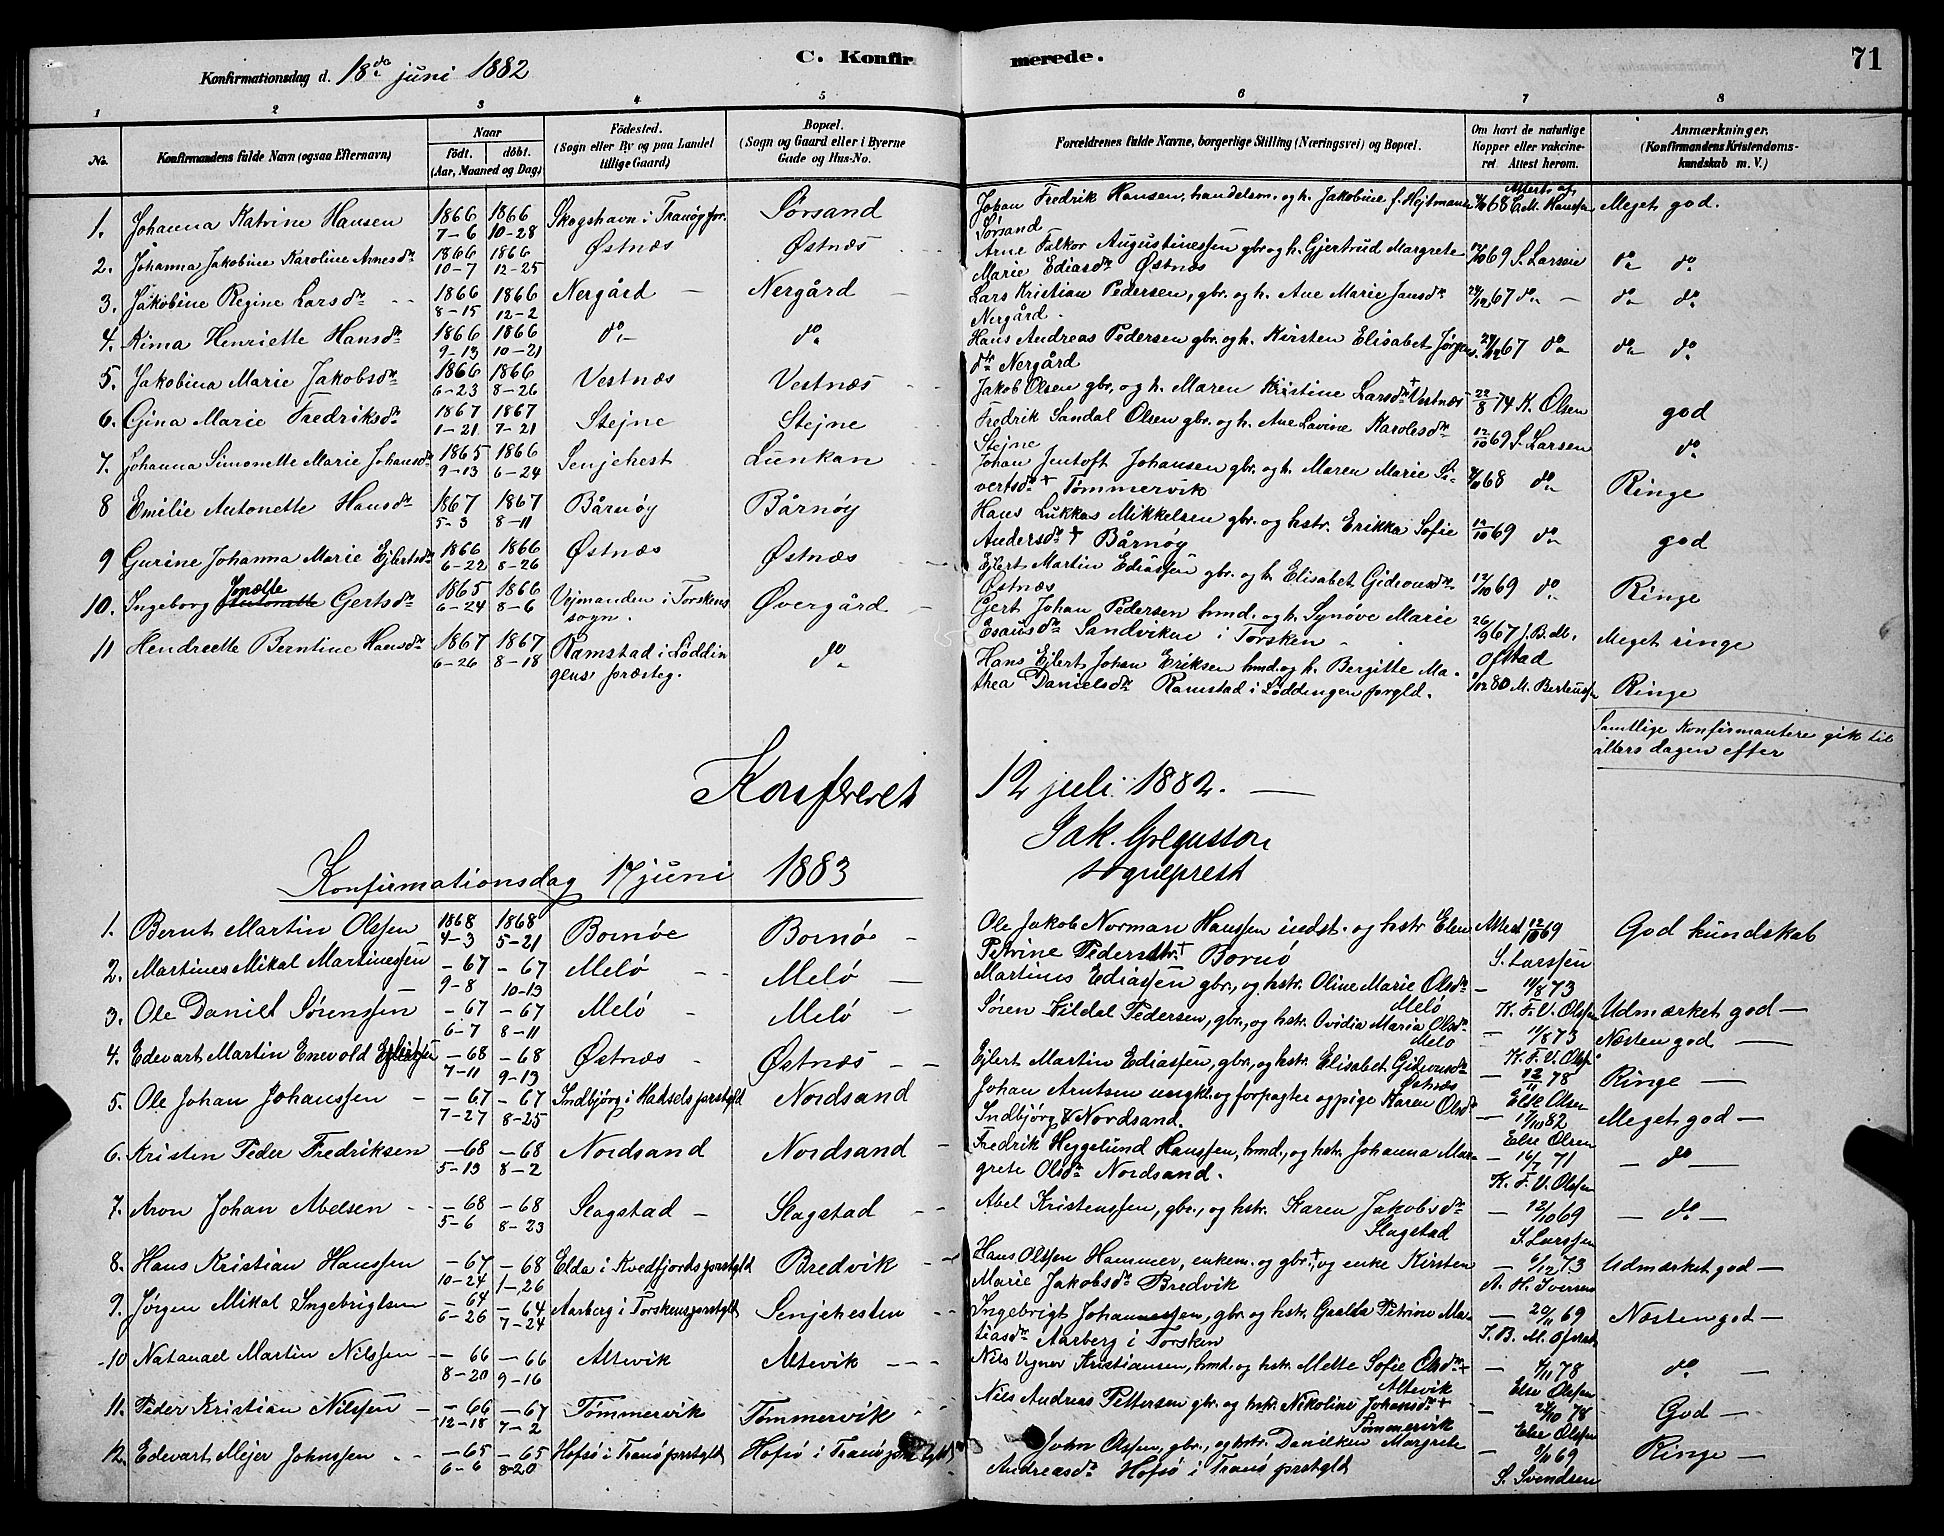 C. Konfirmerede. 71
Konfirmationsdag d. 18de juni 1882
1 2 3 4 5 6 7 8
No. Konfirmandens fulde Navn (ogsaa Efternavn) Naar födt. döbt. (Aar, Maaned og Dag) Födested. (Sogn eller By og paa Landet tillige Gaard) Bopæl. (Sogn og Gaard eller i Byerne Gade og Hus-No. Forældrenes fulde Navne, borgerlige Stilling (Næringsvei) og Bopæl. Om havt de naturlige Kopper eller vakcineret Attest herom. Anmærkninger. (Konfirmandens Kristendomskundskab m. V.)
1. Johanna Katrine Hansen 1866 7-6 1866 10-28 Skogshavn i Tranøy Sørsand Johan Fredrik Hansen, handelsm. og h. Jakobine f. Hejtmann Sørsand Attest af 68 M. Hansen Meget god.
2. Johanna Jakobine Karoline Arnesdr 1866 10-7 1866 12-25 Østnæs Østnæs Arne Falkor Augustinessen gbr. og h. Gjertrud Margrete Marie Ediasdr Østnæs 12/10 69 S. Larsen do do
3. Jakobine Regine Larsdr 1866 8-15 1866 12-2 Nergård Nergård Lars Kristian Pedersen, gbr. og h. Ane Marie Jansdr Nergård 29/12 67 do do do
4. Rima Henriette Hansdr 1866 9-13 1866 10-21 do do Hans Andreas Pedersen gbr. og h. Kirsten Elisabet Jørgensdr Nergård 29/12 67 do do do
5. Jakobina Marie Jakobsdr 1866 6-23 1866 8-26 Vestnæs Vestnæs Jakob Olsen gbr. og h. Maren Kristine Larsdr + Vestnæs 22/8 74 K. Olsen god
6. Gina Marie Fredriksdr 1867 1-21 1867 7-21 Stejne Stejne Fredrik Sandal Olsen gbr. og h. Ane Lavine Karolesdr Stejne 12/10 69 S. Larsen do
7. Johanna Simonette Marie Johansdr 1865 9-13 1866 6-24 Senjehest Lunkan Johan Jentoft Johansen gbr. og h. Maren Marie Sivertsdr + Tømmervik 68 do Ringe
8 Emilie Antonette Hansdr 1867 5-3 1867 8-11 Bårnøy Bårnøy Hans Lukkas Mikkelsen gbr. og hstr. Erikka Sofie Andersdr + Bårnøy 12/10 69 do god
9 Gurine Johanna Marie Ejlertsdr 1866 6-22 1866 8-26 Østnæs Østnæs Ejlert Martin Ediassen gbr. og h. Elisabet Gideonsdr Østnæs 12/10 69 do Ringe
10. Ingeborg Jonette Gertsdr 1865 6-24 1866 8-6 Vejmanden i Torskens sogn. Øvergård Gert Johan Pedersen hmd. og h. Synøve Marie Esausdr Sandviken i Torsken 26/9 67 J. B. M. Ofstad Meget ringe
11 Hendreette Berntine Hansdr 1867 6-26 1867 8-18 Ramstad i Løddingens præsteg. do Hans Ejlert Johan Eriksen hmd. og h. Bergitte Mathea Danielsdr Ramstad i Løddingen prgld. 80 M. Berteussen Ringe
Samtlige Konfirmantere gik til alters dagen efter
Konfereret 12 juli 1882.
Jak. Gregusson
sogneprest
Konfirmationsdag 17 juni 1883
1. Bernt Martin Olssen 1868 4-3 1868 5-21 Bornøe Bornø Ole Jakob Norman Hanssen indst. og hstr Elen Petrine Pedersdtr + Bornø Attest 12/10 69 S. Larssen God kundskab
2. Martines Mikal Martinessen -67 9-8 -67 10-13 Melø Melø Martines Ediassen gbr., og hstr. Oline Marie Olsdr Melø 73 K. F. V. Olssen Udmærket god
3. Ole Daniel Sørenssen -67 6-7 -67 8-11 Melø Melø Søren Lildal Pedersen, gbr., og hstr. Ovidia Maria Olsdr Melø 73 K. F. V. Olssen Næsten god
4. Edevart Martin Enevold Ejlertsen -68 7-11 -68 9-13 Østnæs Østnæs Ejlert Martin Ediassen, gbr., og hstr. Elisabet Gideonsdr Østnæs 12/11 78 Else Olsen Ringe
5. Ole Johan Johanssen -67 7-27 -67 8-25 Indbjörg i Hadsels prstgld Nordsand Johan Arntsen ungkl. og forpagter og pige Karen Olsdr Indbjörg & Nordsand. 17/10 82 Else Olsen Meget god
6. Kristen Peder Fredriksen -68 5-13 -68 8-2 Nordsand Nordsand Fredrik Heggelund Hanssen, hmd., og hstr. Johanna Margrete Olsdr Nordsand. 16/7 71 K. F. V. Olssen do
7. Aron Johan Abelsen -68 5-6 -68 8-23 Slagstad Slagstad Abel Kristenssen, gbr., og hstr. Karen Jakobsdr Slagstad 12/10 69 S. Larssen do
8. Hans Kristian Hanssen -67 10-24 -68 1-26 Elda i Kvedfjords prstgld Bredvik Hans Olssen Hammer, enkem. og gbr. +, og enke Kirsten Marie Jakobsdr Bredvik 6/12 73 A. H. Iversen Udmærket god
9. Jørgen Mikal Ingebrigtsen -64 6-26 -64 7-24 Aarberg i Torskens prstgld Senjehesten Ingebrigt Johannessen, gbr. og hstr. Gralda Petrine Matiasdr Aarberg i Torsken 20/11 69 J. B. M. Næsten god
10 Natanael Martin Nilssen -66 8-20 -66 9-16 Altevik Altevik Nils Vegner Kristiansen, hmd. og hstr. Mette Sofie Olsdr + Altevik 78 Else Olssen do
11. Peder Kristian Nilssen -66 12-18 -67 7-2 Tømmervik Tømmervik Nils Andreas Pettersen gbr. og hstr. Nikoline Johansdr + Tømmervik 78 Else Olssen God
12. Edevart Mejer Johnssen -65 6-6 -65 8-20 Hofsö i Tranö prstgld Hofsö i Tranö John Olssen, gbr., og hstr. Daniken Margrete Andreasdr Hofsö i Tranö prstgld 69 S. Svendsen Ringe